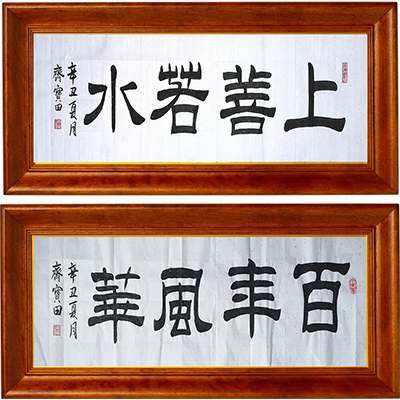 上善若水
辛丑夏月
齊寶田
百年風華
辛丑夏月
齊寶田